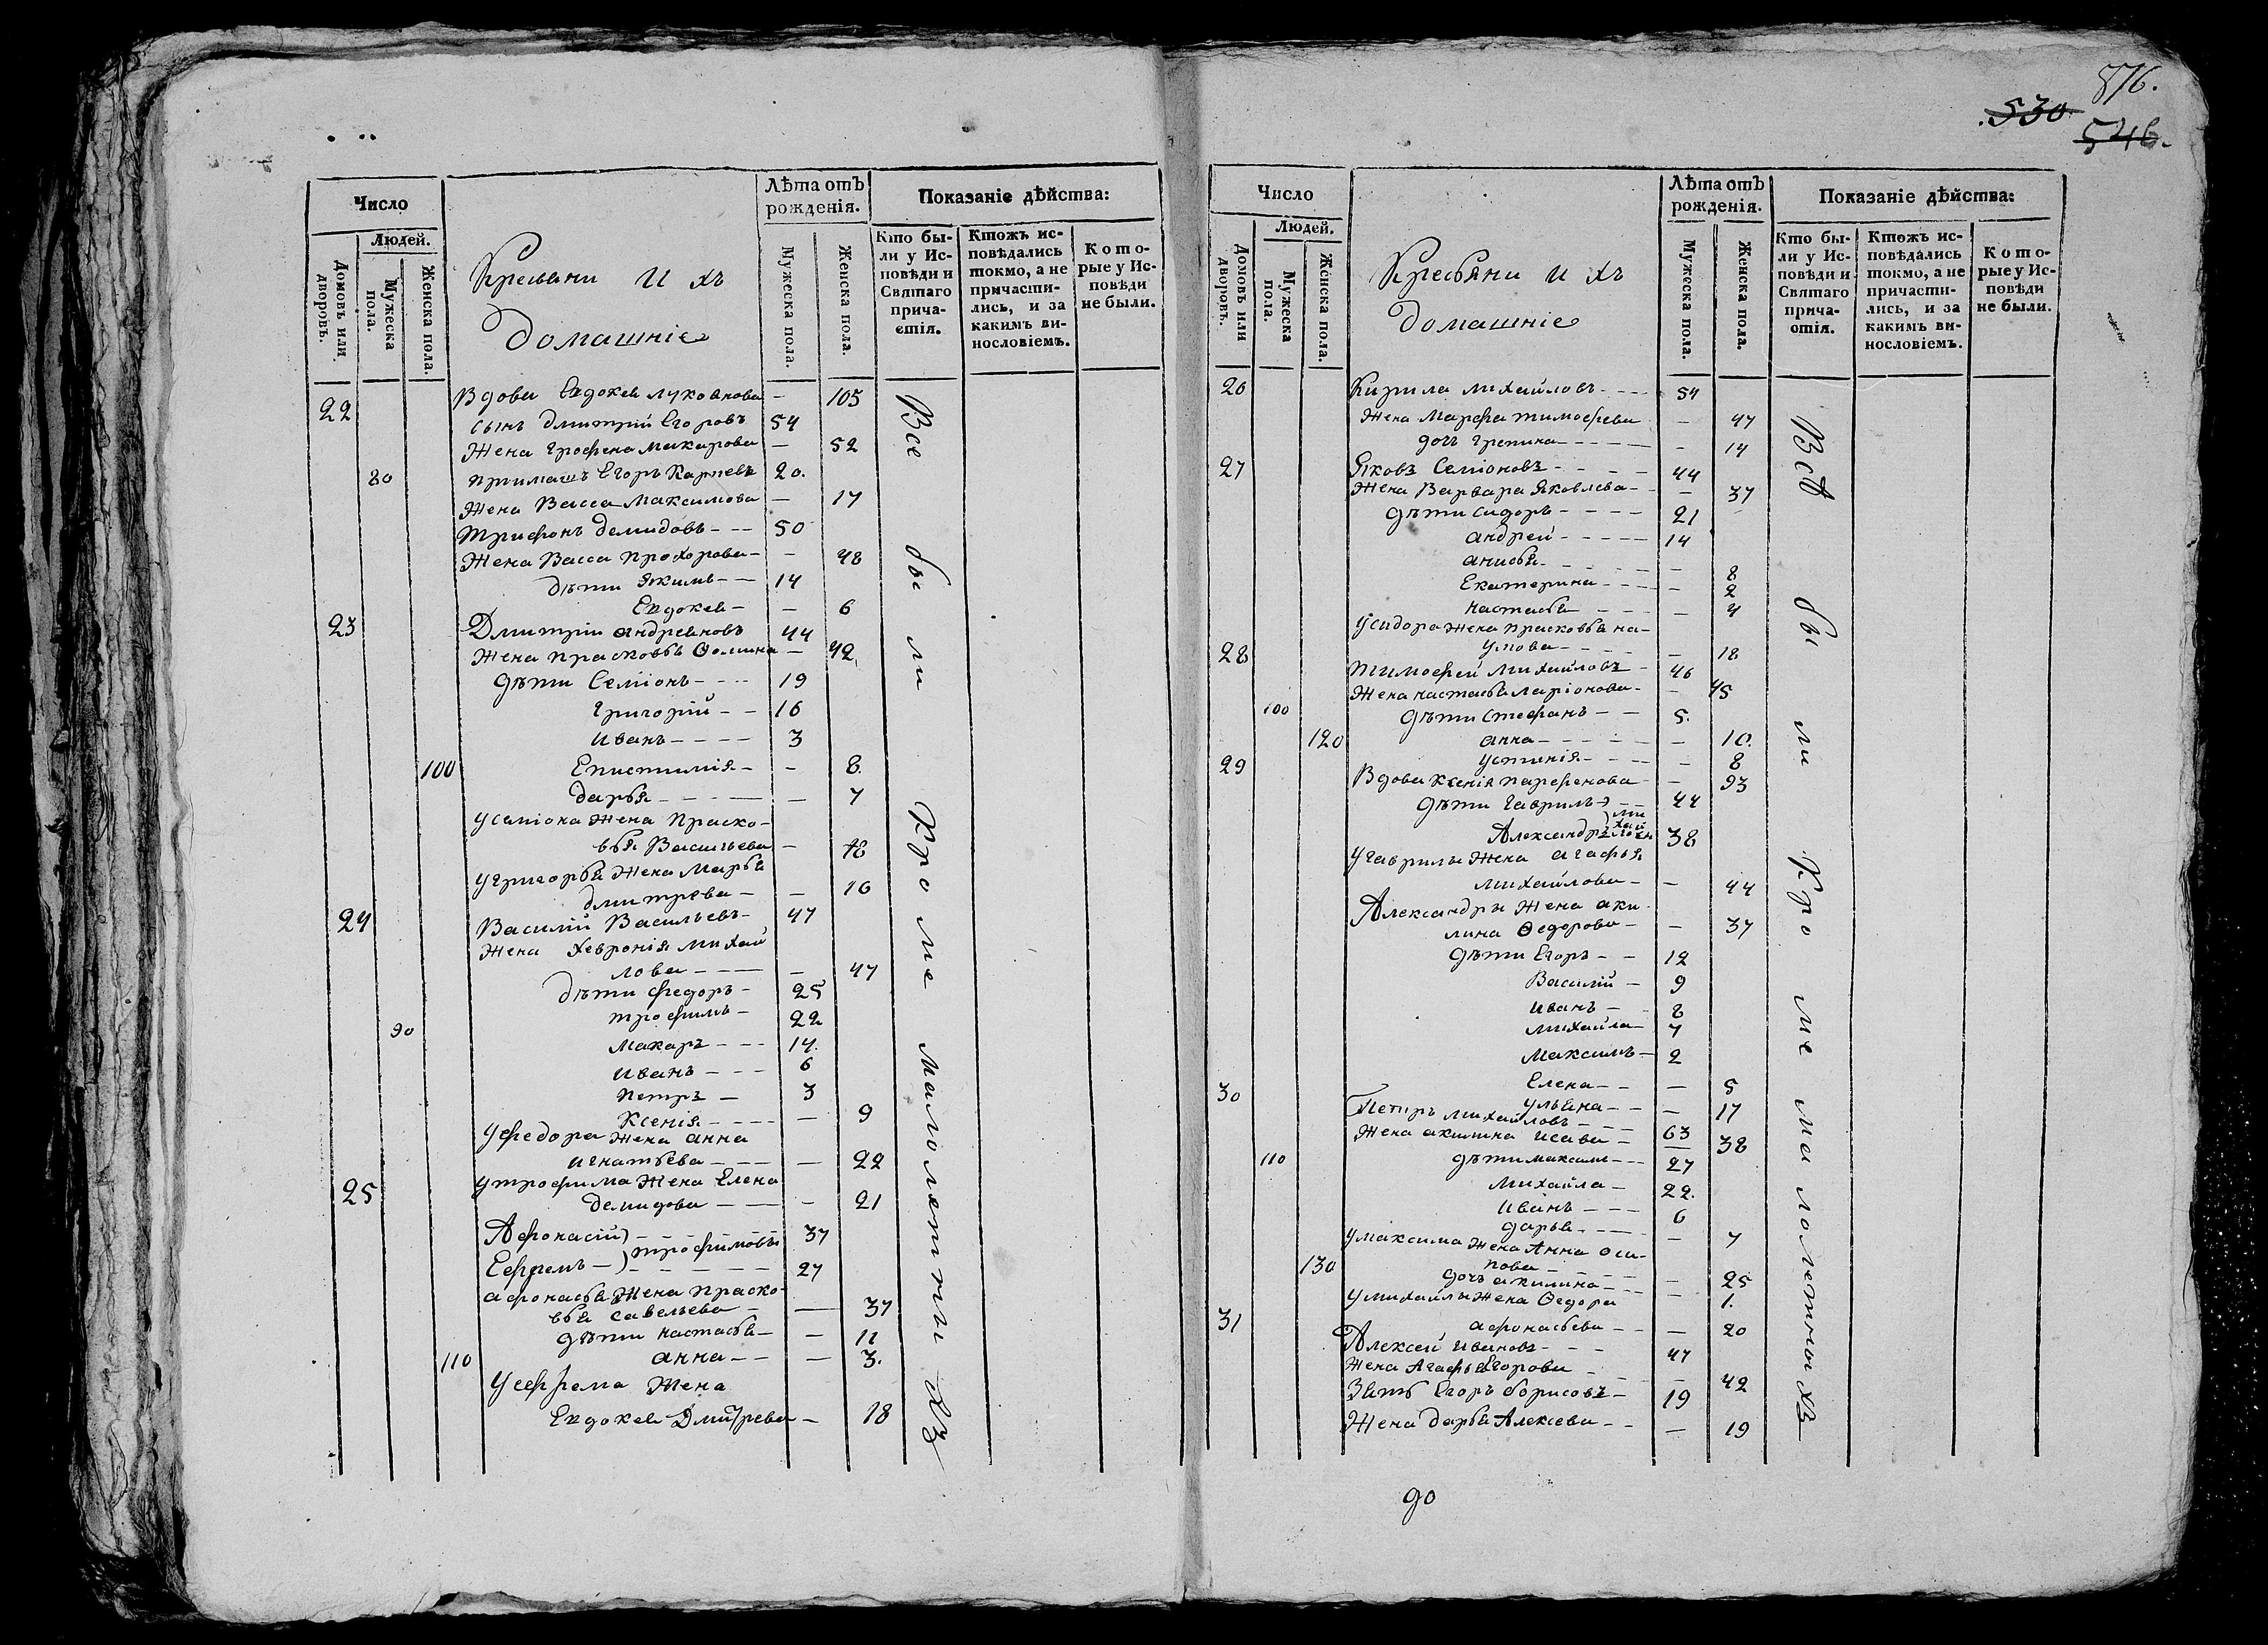 876.
530
546.
Число
Людей.
Домовъ или дворовъ.
Мужеска пола.
Женска пола.
Крестьяни И хъ
домашніе
Лѣта отъ рожденія.
Мужеска пола.
Женска пола.
Показаніе дѣйства:
Кто были у Исповѣди и Святаго причастія.
Ктожъ исповѣдались токмо, а не причастились, и за какимъ винословіемъ.
Которые у Исповѣди не были.
Вдова Евдокея лукоянова — 105
22 сынъ дмитрій Егоровъ 54
Жена Грофена Макарова — 52
80 примашъ Егоръ Карпевъ 20.
Жена Васса Максимова — 17
Трифонъ демидовъ — 50
Жена Васса прохорова — — 48
дѣти Якимъ — 14
Евдокея — — 6
23 Дмитрій андреяновъ 44
Жена прасковья Ѳомина — 42
дѣти Семіонъ — 19
григорій — 16
иванъ — 3
100 Епистимія — — 8.
дарья — — 7
у семіона Жена Праско-
вья Васильева — 18
у григорья Жена Марья
дмитрева — — 16
24 Василій Васильевъ — 47
Жена Хевронія михай
лова — — 47
дѣти федоръ — 25
90 трофимъ — 22
макаръ — 14.
иванъ — 6
петръ — 3
Ксенія — — 9
у федора Жена анна
игнатьева — — 22
у трофима Жена Елена
25 демидова — — 21
Афонасій) — 37
трофимовы
Ефремъ —) — 27
афонасья Жена праско-
вья савельева — — 37
дѣти настасья — — 11
110 анна — — 3.
у ефрема Жена
Евдокея Дмитрева — 18
Все бы ли Кро ме малолетныхъ
Число
Людей.
Домовъ или дворовъ.
Мужеска пола.
Женска пола.
Крестьяни и хъ
домашніе
Лѣта отъ рожденія.
Мужеска пола.
Женска пола.
Показаніе дѣйства:
Кто были у Исповѣди и Святаго причастія.
Ктожъ исповѣдались токмо, а не причастились, и за какимъ винословіемъ.
Которые у Исповѣди не были.
26 Кирила михайловъ — 54
Жена Марфа тимофеева — 47
дочь грепина — — 14
27 Яковъ Семіоновъ — 44
Жена Варвара Яковлева — — 37
дѣти сидоръ — 21
андрей — 14
анисья — — 8
Екатерина — — 2
настасья — — 4
у сидора жена прасковья на-
28 умова — — 18
тимофей михайловъ — 46
Жена настасья ларіонова — — 45
100 дѣти стефанъ — 5.
120 анна — — 10.
29 устинія — — 8
Вдова Ксенія парфенова — — 93
дѣти гаврилъ) — 44
Александръ 38
у гаврилы Жена агафья
михайлова — — 44
Александры Жена аку
лина Ѳедорова — — 37
дѣти Егоръ — 12
Василій — 9
иванъ — 8
михайла — 7
Максимъ — 2
30 Елена — — 5
ульяна — — 17
Петръ михайловъ — 63
Жена акилина исаева — — 38
110 дѣти максимъ — 27
михайла — 22.
иванъ — 6
дарья — — 7
у максима жена Анна оси-
130 пова — — 25
дочь акилина — — 1.
у михайлы Жена Ѳедора
31 афонасьева — — 20
Алексей ивановъ — 47
Жена Агафья Егорова — — 42
Зять Егоръ борисовъ — 19
Жена дарья Алексева — — 19
Всѣ бы ли Кро ме ма лолетныхъ
до